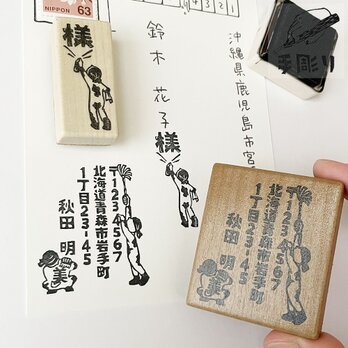 NIPPON 63
様
沖縄県鹿児島市宮
鈴木花子様
〒1234567
北海道青森市岩手町
1丁目23-45
秋田 明
美
〒1234567
北海道青森市岩手町
1丁目23-45
秋田 明
美
手彫り